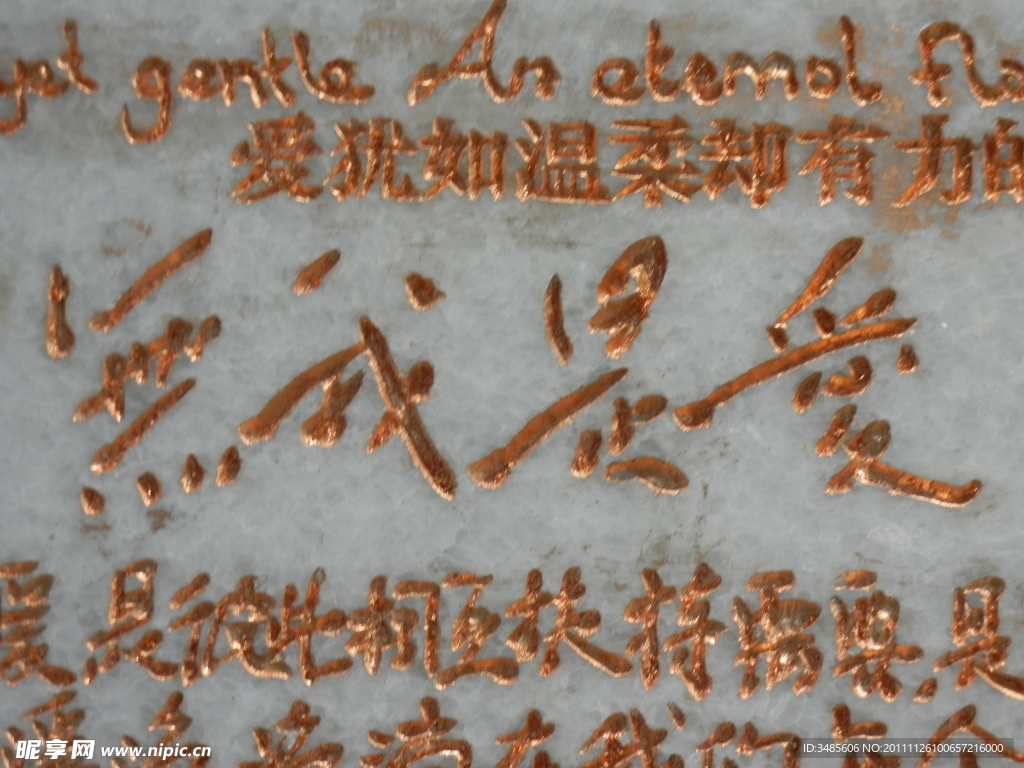 yet gentle An eternal fla
爱犹如温柔却有力的
无我是爱
爱是彼此相互扶持需要是
在我们
昵享网 www.nipic.cn
ID:3485606 NO:20111126100657216000